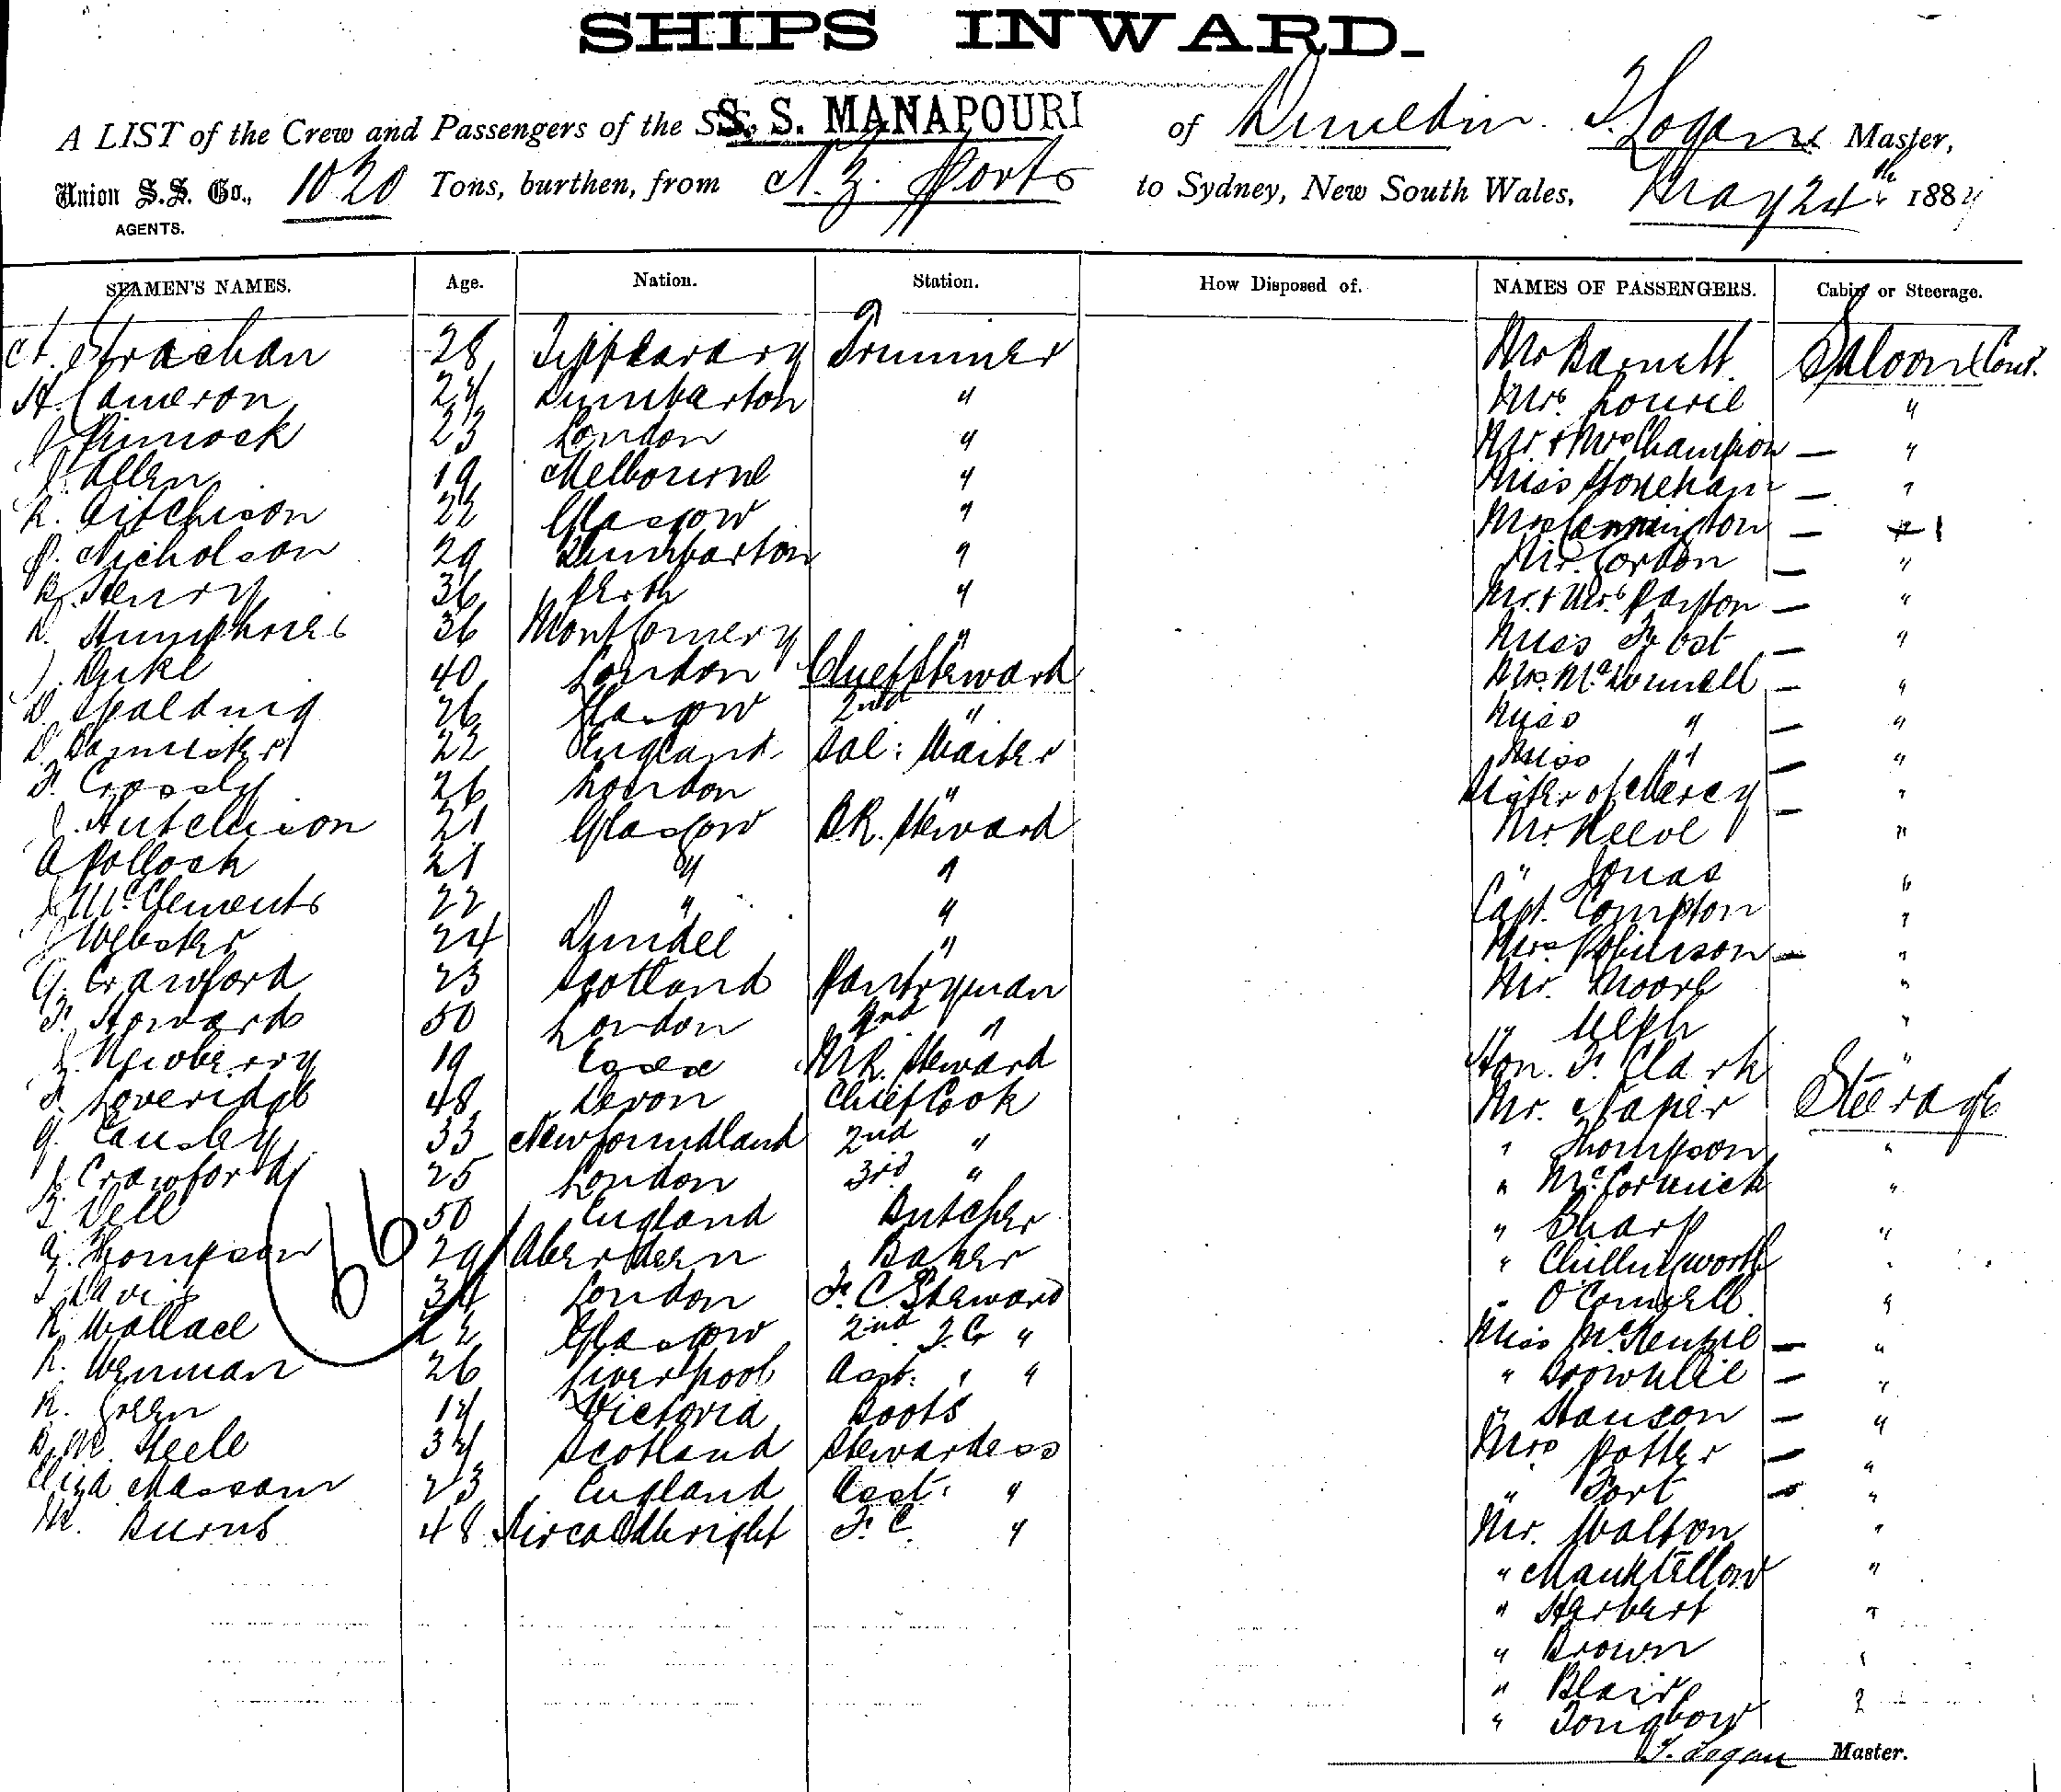 SHIPS INWARD.
A LIST of the Crew and Passengers of the S.S. S. S. MANAPOURI of Dunedin. Logan Master,
Union S.S. Co., 1020 Tons, burthen, from N. Z. Ports to Sydney, New South Wales, May 24th 188
AGENTS.
SEAMEN'S NAMES. Age. Nation. Station. How Disposed of. NAMES OF PASSENGERS. Cabin or Steerage.
A. Strachan 28 Tipperary Trimmer Mr Barnett Saloon Cont.
H. Cameron 24 Dumbarton " Mrs. Lourie "
J. Pinnock 23 London " Mr & Mrs Champion — "
J. Allen 19 Melbourne " Miss Stoneham — "
R. Aitchison 22 Glasgow " Mrs Cannington — 1
P. Nicholson 29 Dumbarton " Mr. Gordon — "
R. Henry 36 Perth " Mr. & Mrs. Paxton — "
D. Humphries 36 Montgomery " Miss Frost — "
J. Duke 40 London Chief Steward Mrs. McDonnell — "
D. Spalding 26 Glasgow 2nd " Miss " — "
D. Bannister 22 England Sal: Waiter Miss " — "
F. Crossly 26 London " Sister of Mercy — "
J. Hutchison 21 Glasgow B.R. Steward Mr. Reeve "
A Pollock 21 " " " Jonas "
J McClements 22 " " Capt. Compton "
J Webster 24 Dundee " Mrs Robinson — "
G. Crawford 23 Scotland Pantryman Mr. Moore "
F. Howard 50 London 2nd " " Ulph "
J. Newberry 19 Essex M.R. Steward Hon. F. Clark "
F. Loveridge 48 Devon Chief Cook Mr. Napier Steerage
G. Causley 33 Newfoundland 2nd " " Thompson "
J. Crawforth 25 London 3rd " " McCormick "
T. Dell 50 England Butcher " Sharp "
A. Thompson 29 Aberdeen Baker " Chillingworth "
T. Davis 34 London F. C. Steward " O'Connell "
R. Wallace 22 Glasgow 2nd F. C " Miss McKenzie — "
R. Wenman 26 Liverpool Asst. " " " Brownlie — "
R. Green 17 Victoria Boots " Hanson — "
B. M. Steele 34 Scotland Stewardess Mrs Potter — "
Eliza Massam 23 England Asst. " " Fort — "
M. Burns 48 Kircaldbright F. C. " Mr. Walton "
66
" Manktellow "
" Herbert "
" Brown "
" Blair
" Tongbow
T. Logan Master.